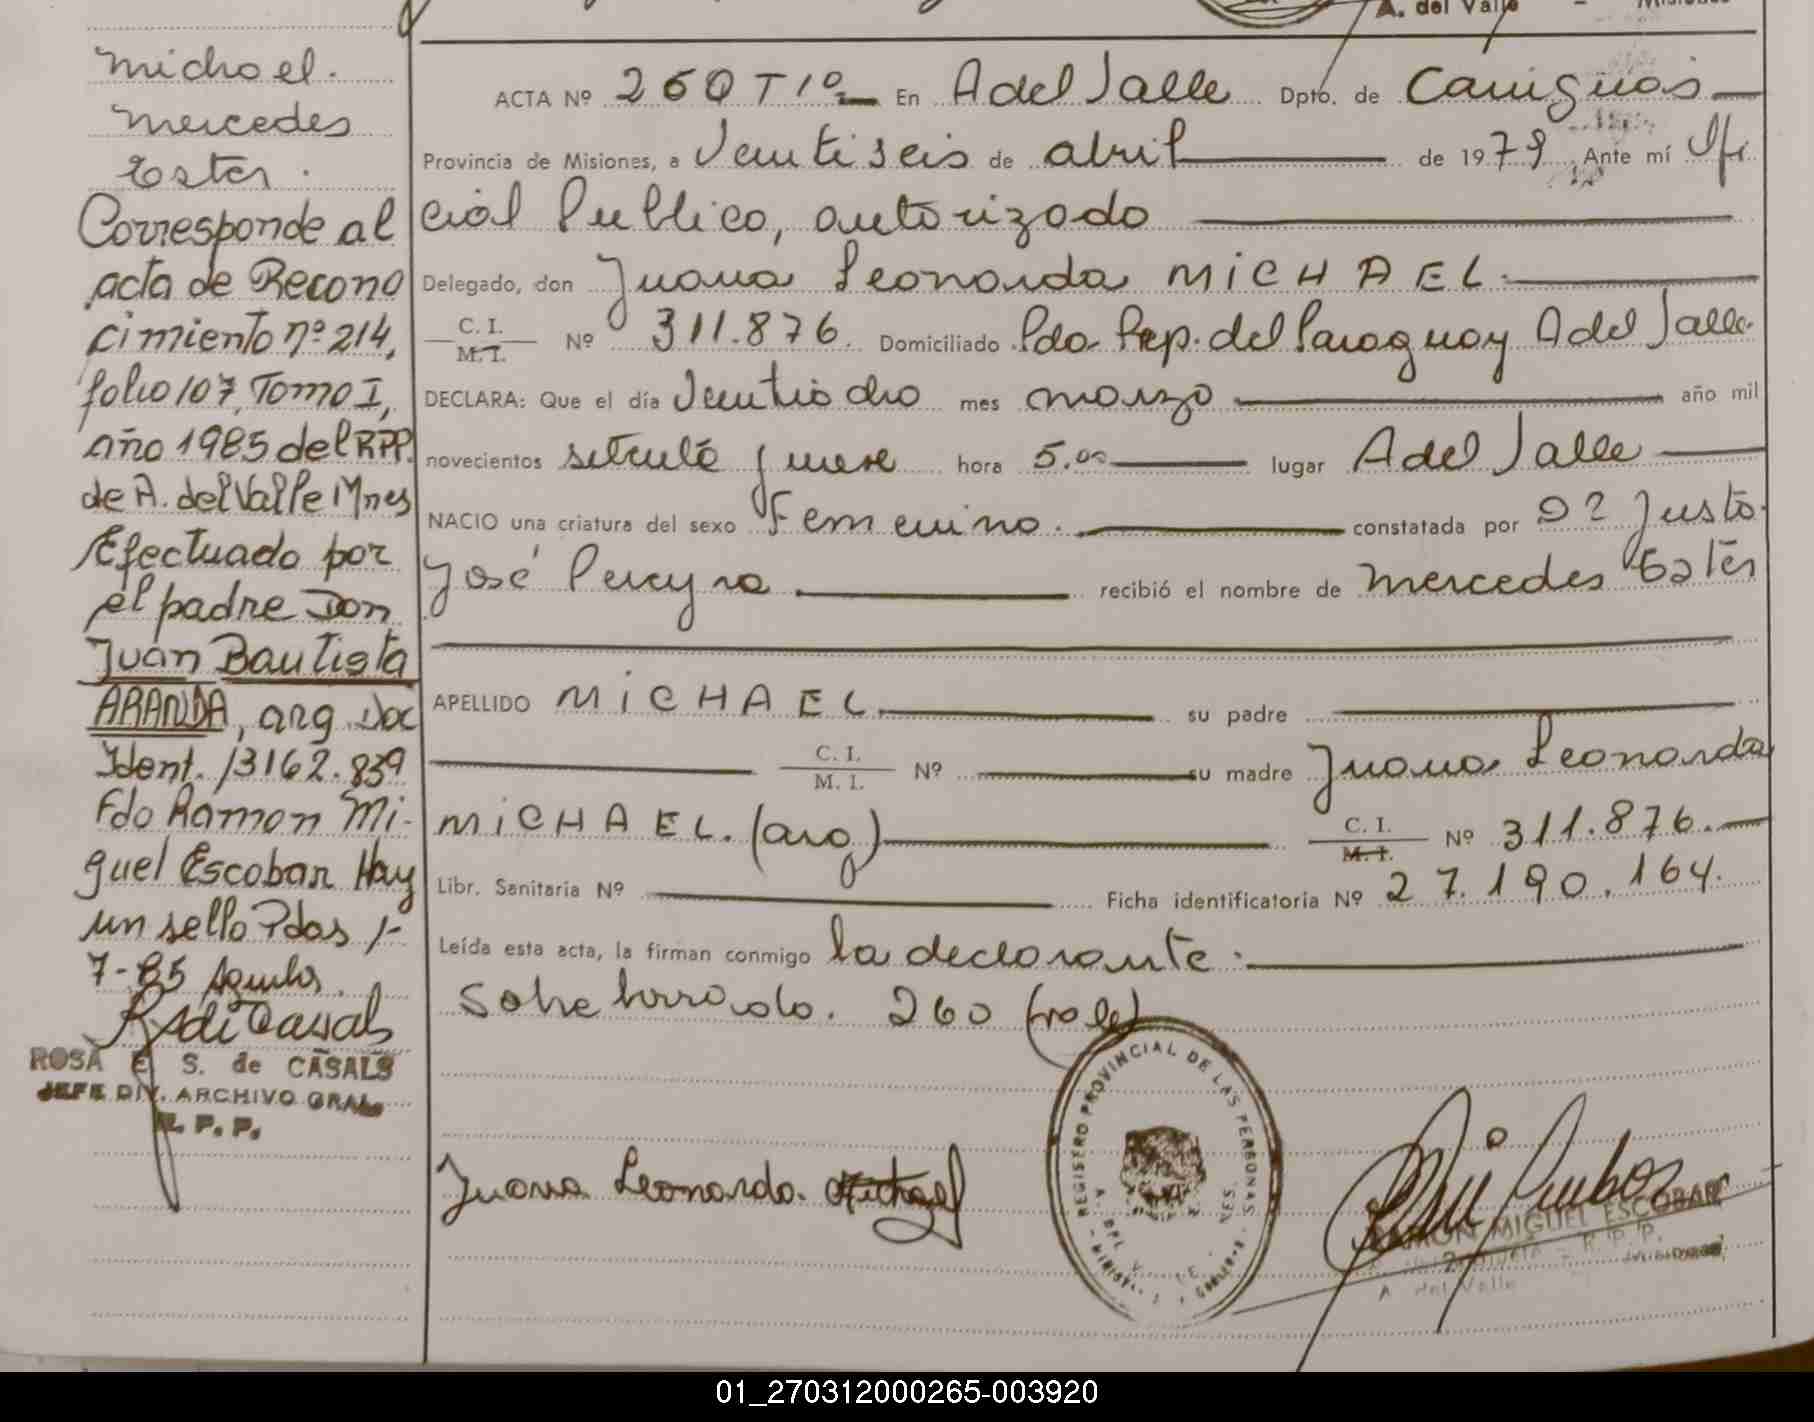 A. del Valle - Misiones
Michael.
Mercedes
Ester.
Corresponde al
acta de Recono
cimiento nº 214,
folio 107, Tomo I,
año 1985 del RPP.
de A. del Valle Mnes
Efectuado por
el padre Don
Juan Bautista
ARANDA, arg. Doc
Ident. 13162.839
Fdo Ramon Mi-
guel Escobar Hay
un sello Pdas 1-
7-85
ROSA E. S. de CASALS
JEFE DIV. ARCHIVO GRAL.
R. P. P.
ACTA Nº 260 T 1º En A del Valle Dpto. de Cainguás
Provincia de Misiones, a Veintiseis de abril de 1979 Ante mí Ofi
cial Publico, autorizado
Delegado, don Juana Leonarda MICHAEL.
C. I. M. I. Nº 311.876. Domiciliado Pdo. Rep. del Paraguay A del Valle.
DECLARA: Que el día Veintiocho mes marzo año mil
novecientos setenta y nueve hora 5.00 lugar A del Valle
NACIO una criatura del sexo Femenino. constatada por Justo
José Pereyra recibió el nombre de Mercedes Ester
APELLIDO MICHAEL su padre
C. I. M. I. Nº su madre Juana Leonarda
MICHAEL. (arg) C. I. M. I. Nº 311.876.
Libr. Sanitaria Nº Ficha identificatoria Nº 27.190.164.
Leída esta acta, la firman conmigo la declarante.
Sobre borrado. 260 (vale)
REGISTRO PROVINCIAL DE LAS PERSONAS
Juana Leonarda Michael
RAMON MIGUEL ESCOBAR
R. P. P.
A. del Valle
01_270312000265-003920